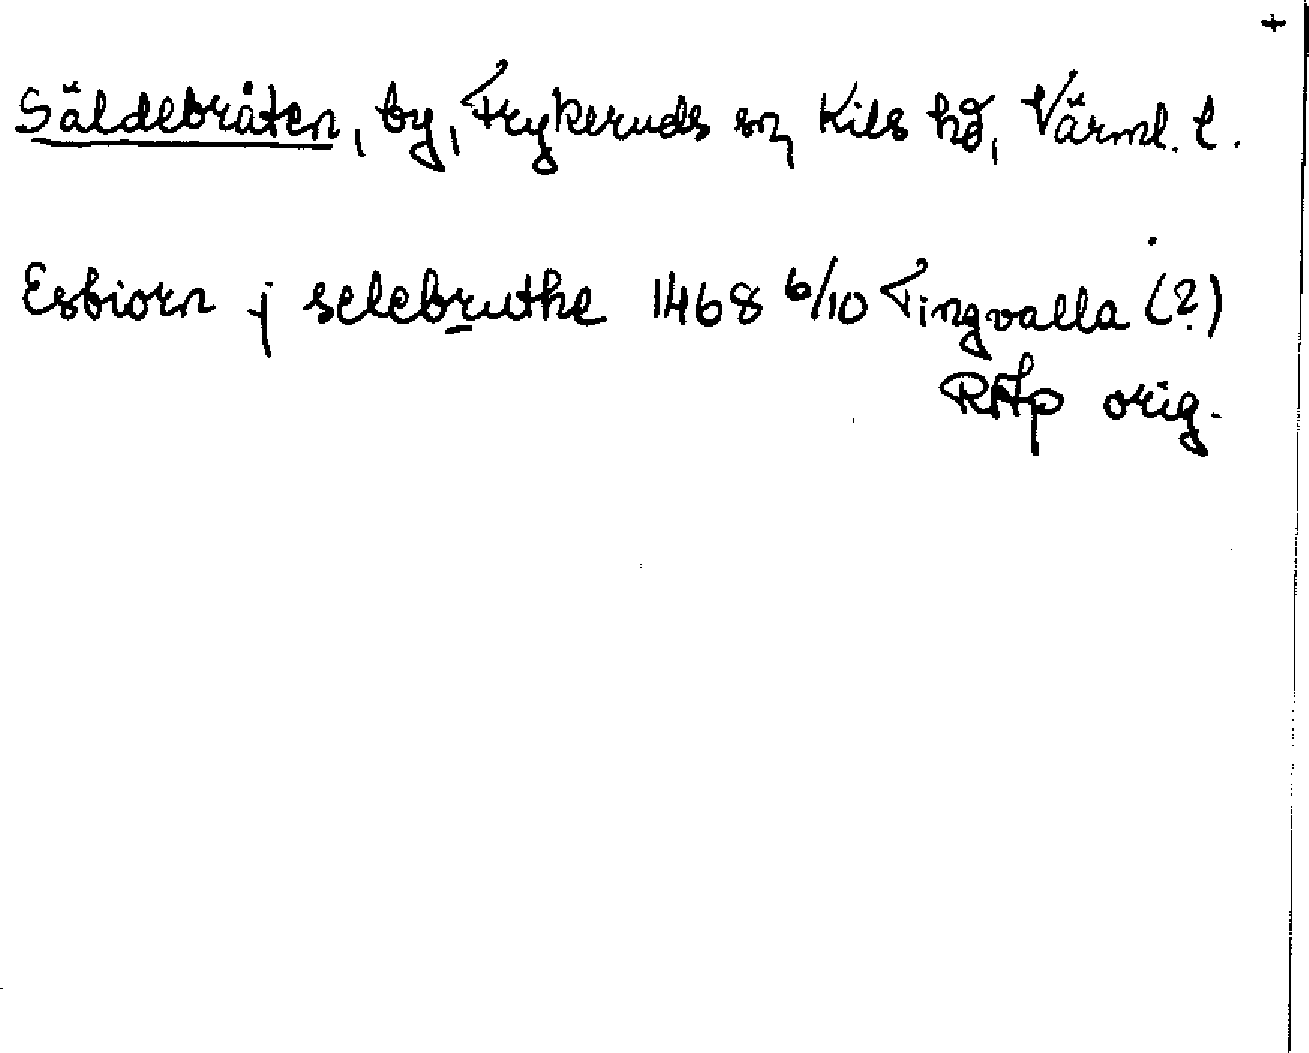 +
Säldebråten, by, Frykeruds sn, Kils hd, Värml. l.
Esbiorn j selebruthe 1468 6/10 Tingvalla (?)
RAp orig.